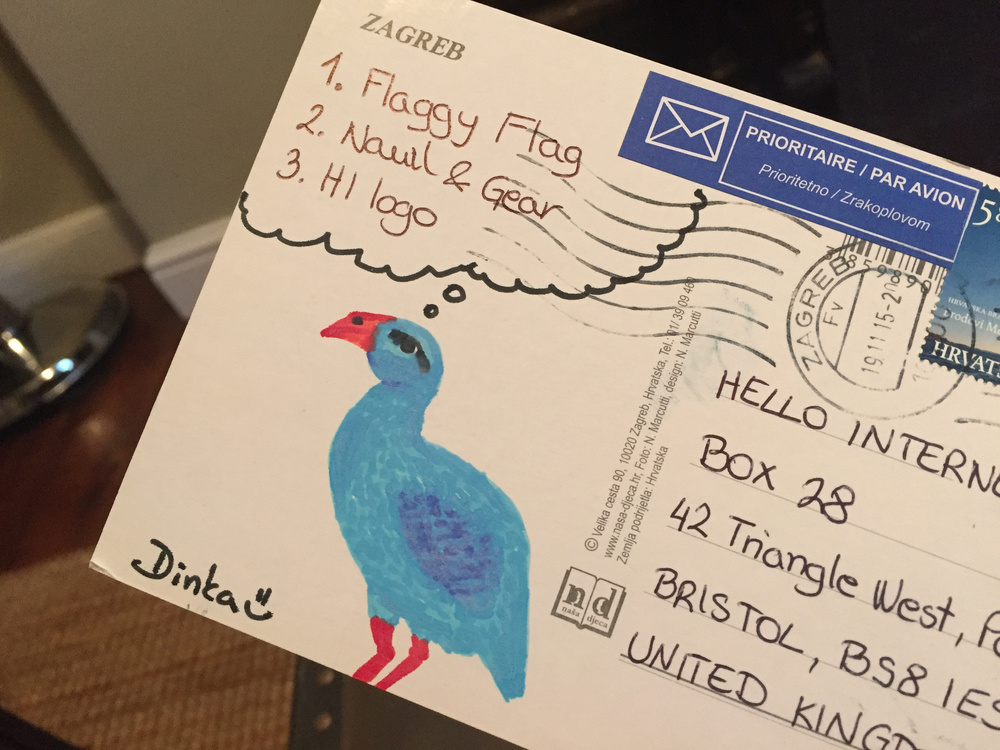 ZAGREB
1. Flaggy Flag
2. Nauil & Gear
3. HI logo
Dinka
PRIORITAIRE / PAR AVION
Prioritetno / Zrakoplovom
ZAGREB
Fv
19.11.15-20
HRVATS
© Velika cesta 90, 10020 Zagreb, Hrvatska, Tel.: 01/ 39 09 460
www.nasa-djeca.hr, Foto: N. Marcutti, design: N. Marcutti
Zemlja podrijetla: Hrvatska
nd
naša djeca
HELLO INTERN
BOX 28
42 Triangle West,
BRISTOL, BS8 1ES
UNITED KINGD